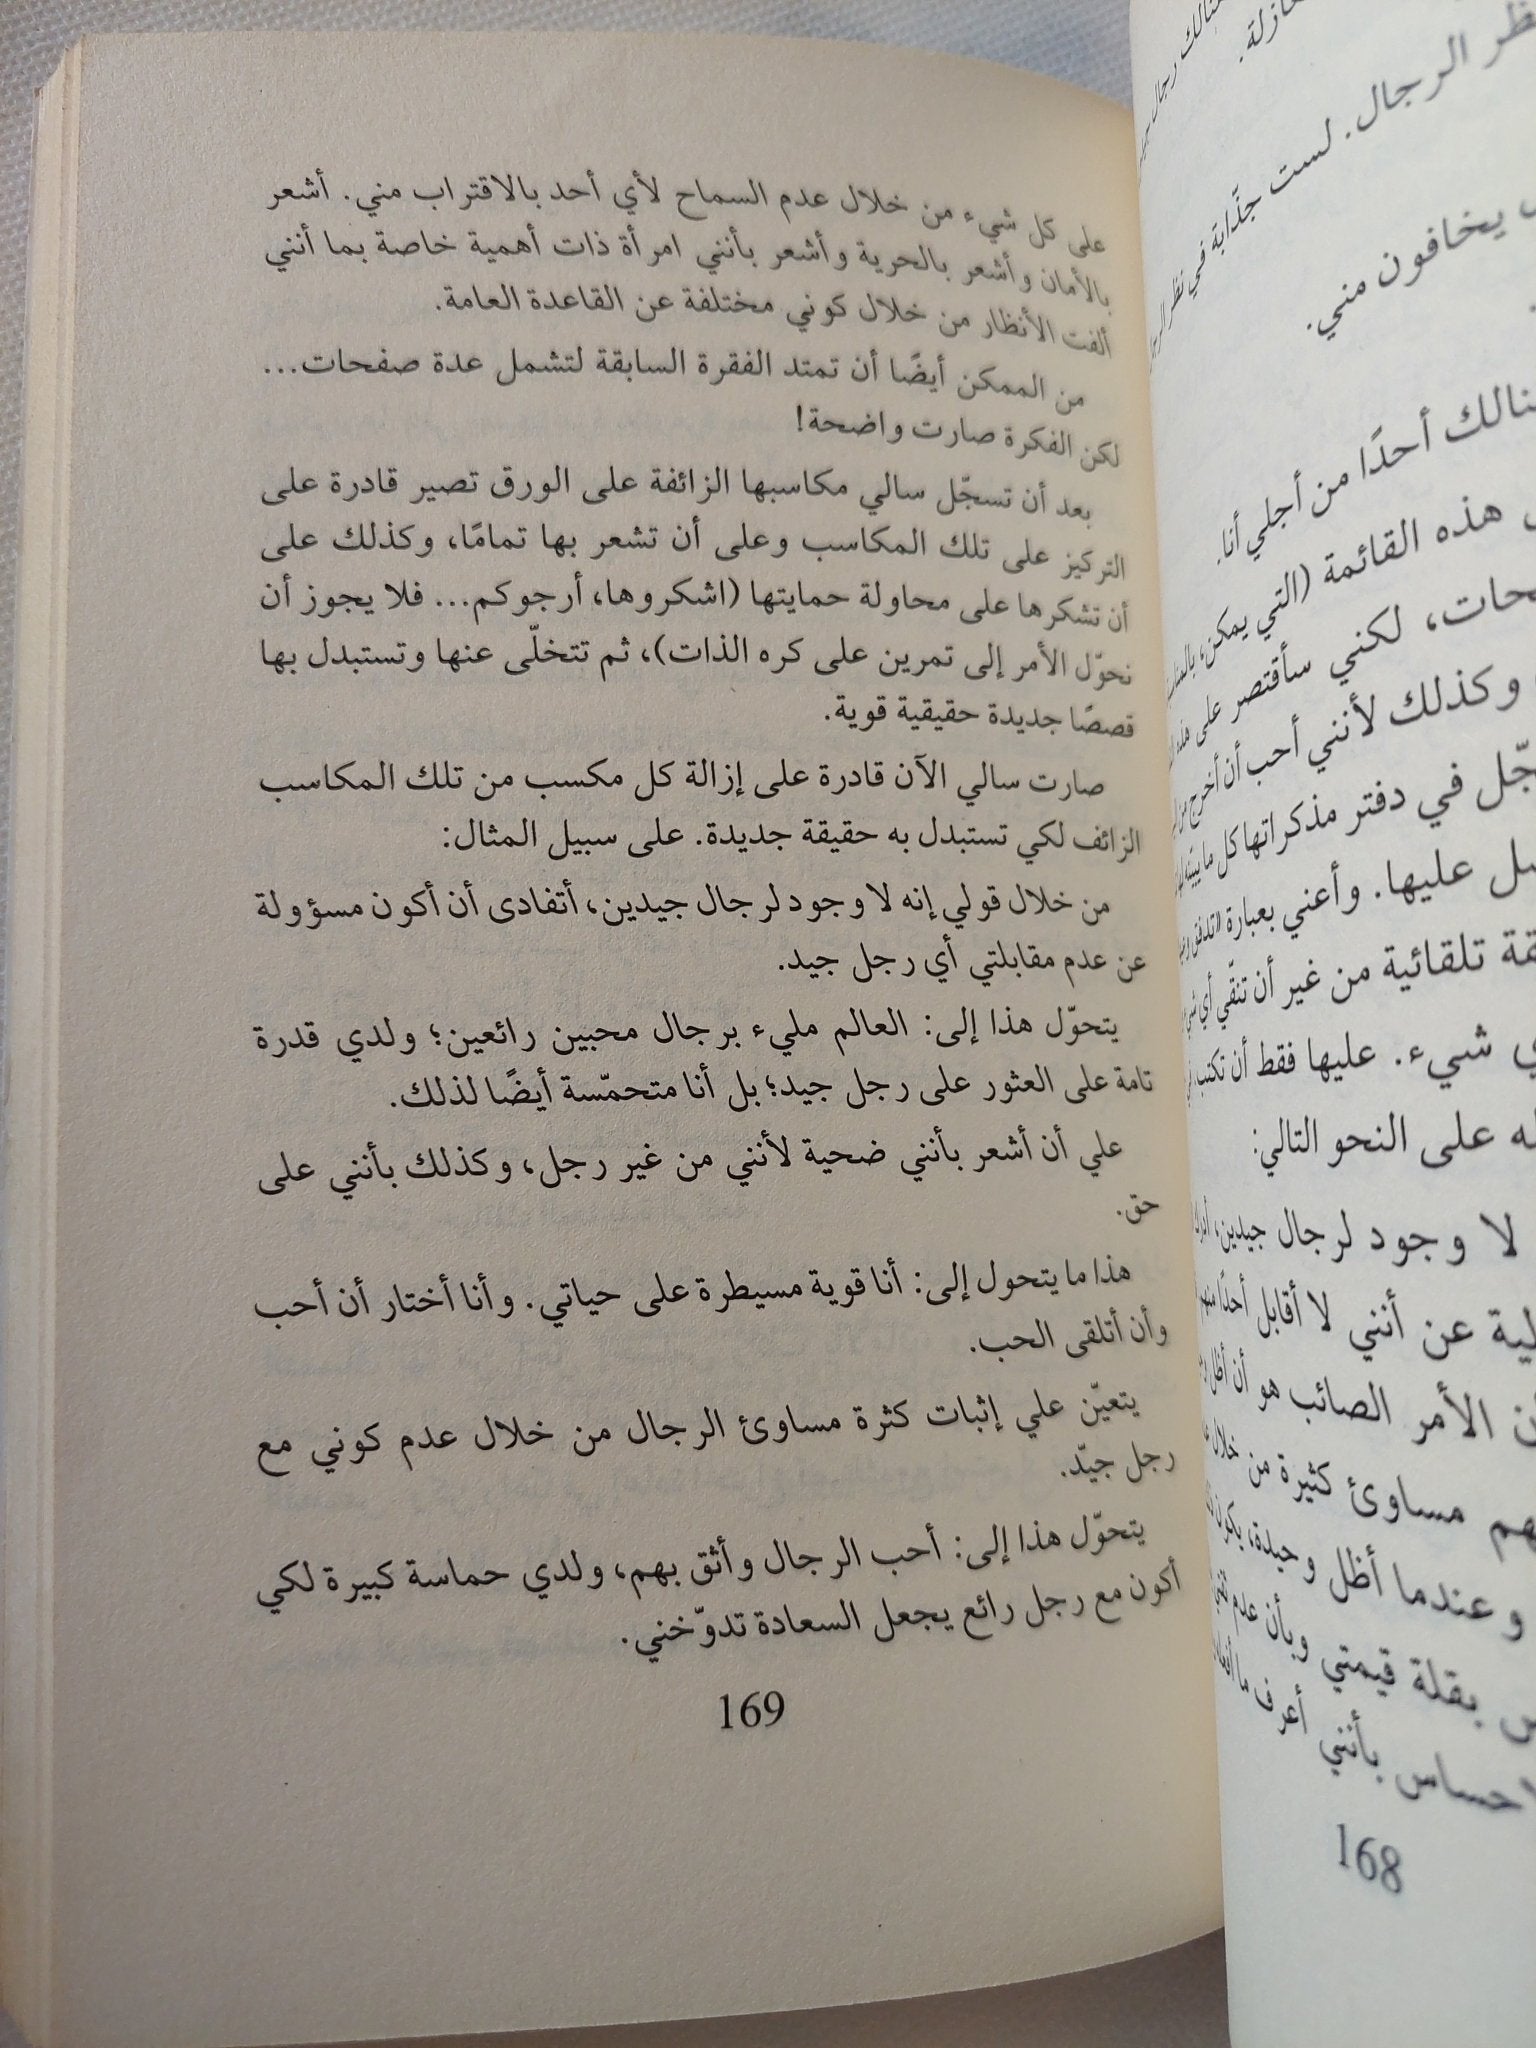 نالك أحدًا من أجلي أنا.
هذه القائمة (التي يمكن،
لكنني سأقتصر على
وكذلك لأنني أحب أن أخرج من
في دفتر مذكراتها كل ما
عليها. وأعني بعبارة
تلقائية من غير أن تنقّي أي
شيء. عليها فقط أن تكتب
على النحو التالي:
لا وجود لرجال جيدين،
عن أنني لا أقابل أحدًا منهم
الأمر الصائب هو أن أظل
مساوئ كثيرة من خلال
وعندما أظل وحيدة، يكون
بقلة قيمتي وبأن عدم
بأنني أعرف ما
168
على كل شيء من خلال عدم السماح لأي أحد بالاقتراب مني. أشعر
بالأمان وأشعر بالحرية وأشعر بأنني امرأة ذات أهمية خاصة بما أنني
ألفت الأنظار من خلال كوني مختلفة عن القاعدة العامة.
من الممكن أيضًا أن تمتد الفقرة السابقة لتشمل عدة صفحات...
لكن الفكرة صارت واضحة!
بعد أن تسجّل سالي مكاسبها الزائفة على الورق تصير قادرة على
التركيز على تلك المكاسب وعلى أن تشعر بها تمامًا، وكذلك على
أن تشكرها على محاولة حمايتها (اشكروها، أرجوكم... فلا يجوز أن
نحوّل الأمر إلى تمرين على كره الذات)، ثم تتخلّى عنها وتستبدل بها
قصصًا جديدة حقيقية قوية.
صارت سالي الآن قادرة على إزالة كل مكسب من تلك المكاسب
الزائف لكي تستبدل به حقيقة جديدة. على سبيل المثال:
من خلال قولي إنه لا وجود لرجال جيدين، أتفادى أن أكون مسؤولة
عن عدم مقابلتي أي رجل جيد.
يتحوّل هذا إلى: العالم مليء برجال محبين رائعين؛ ولدي قدرة
تامة على العثور على رجل جيد؛ بل أنا متحمّسة أيضًا لذلك.
علي أن أشعر بأنني ضحية لأنني من غير رجل، وكذلك بأنني على
حق.
هذا ما يتحول إلى: أنا قوية مسيطرة على حياتي. وأنا أختار أن أحب
وأن أتلقى الحب.
يتعيّن علي إثبات كثرة مساوئ الرجال من خلال عدم كوني مع
رجل جيّد.
يتحوّل هذا إلى: أحب الرجال وأثق بهم، ولدي حماسة كبيرة لكي
أكون مع رجل رائع يجعل السعادة تدوّخني.
169